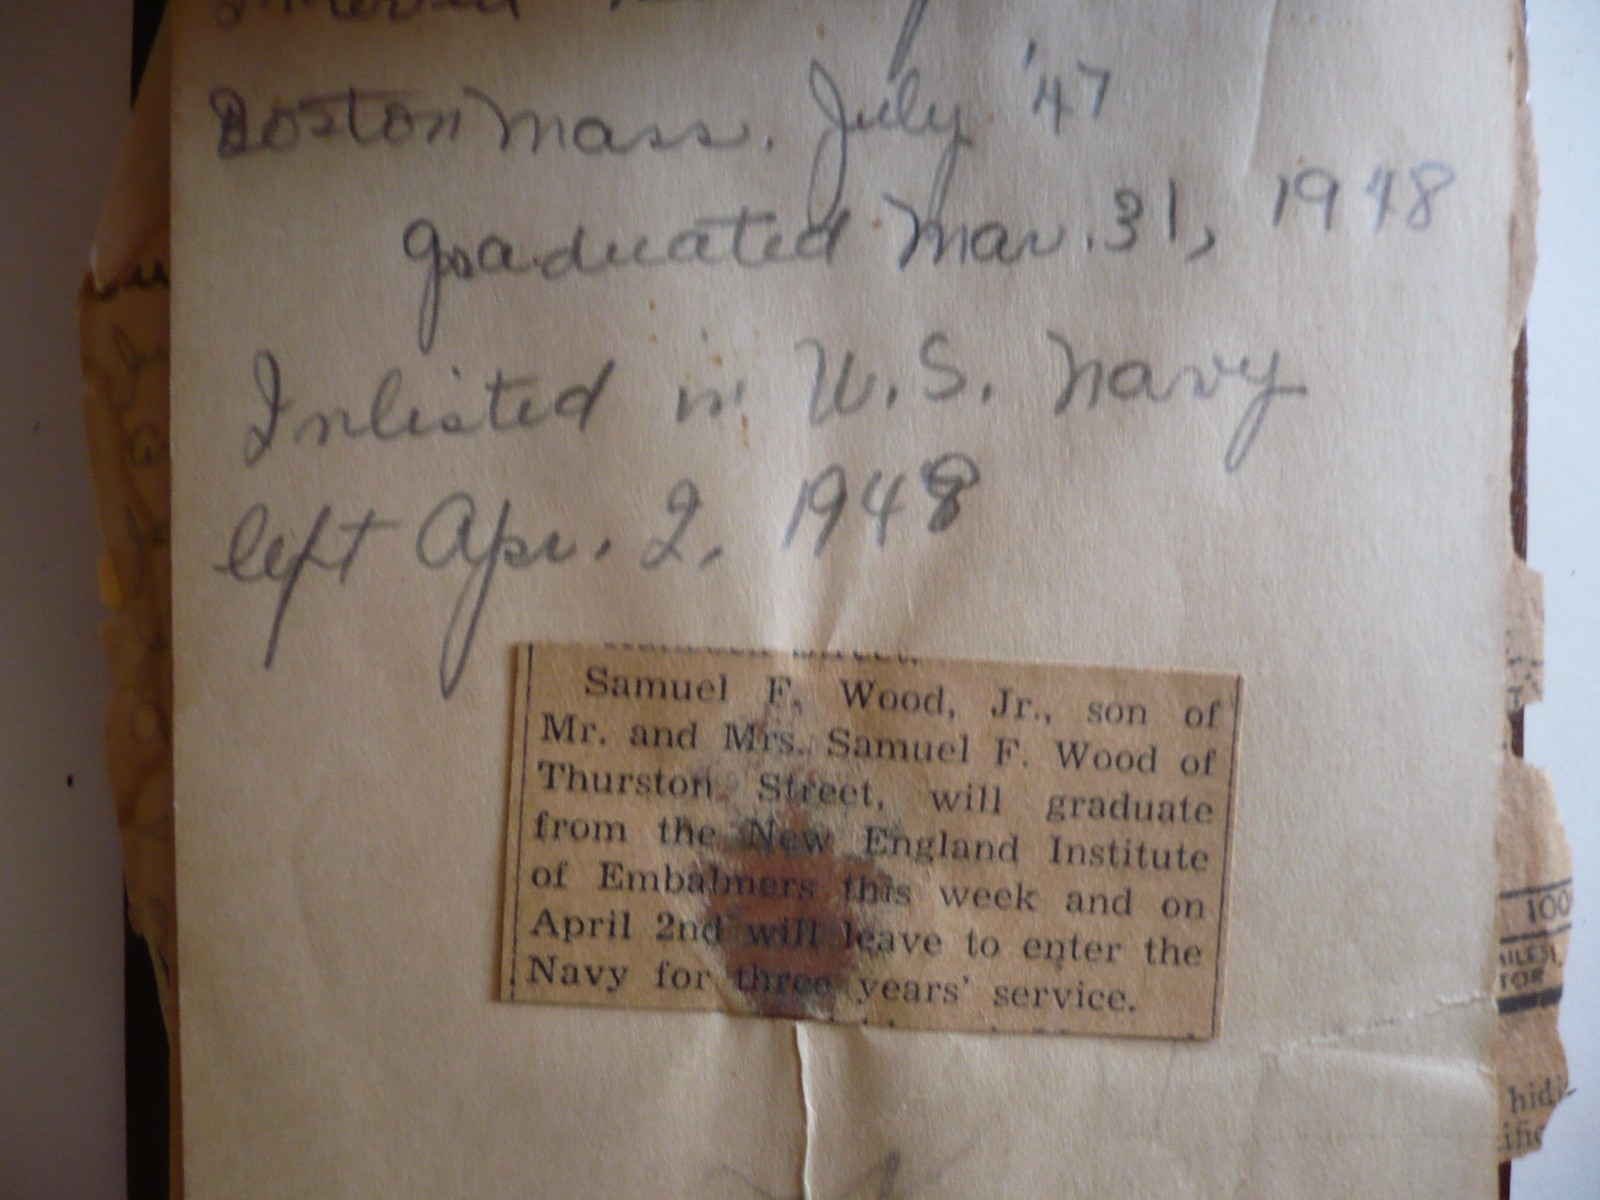 Boston Mass. July '47
graduated Mar. 31, 1948
Inlisted in U.S. Navy
left Apr. 2, 1948
Samuel F. Wood, Jr., son of
Mr. and Mrs. Samuel F. Wood of
Thurston Street, will graduate
from the New England Institute
of Embalmers this week and on
April 2nd will leave to enter the
Navy for three years' service.
100
TOR
hidi